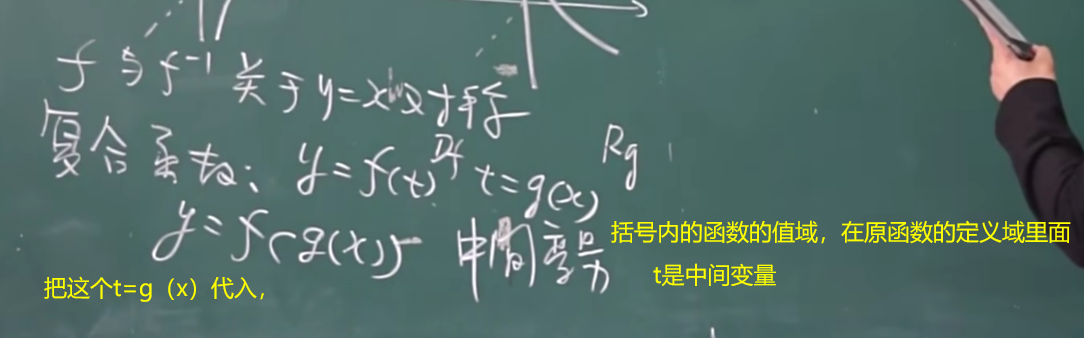 f 与 f⁻¹ 关于 y=x 对称
复合函数: y=f(t) Df t=g(x) Rg
y=f(g(x)) 中间变量
括号内的函数的值域，在原函数的定义域里面
t是中间变量
把这个t=g（x）代入，